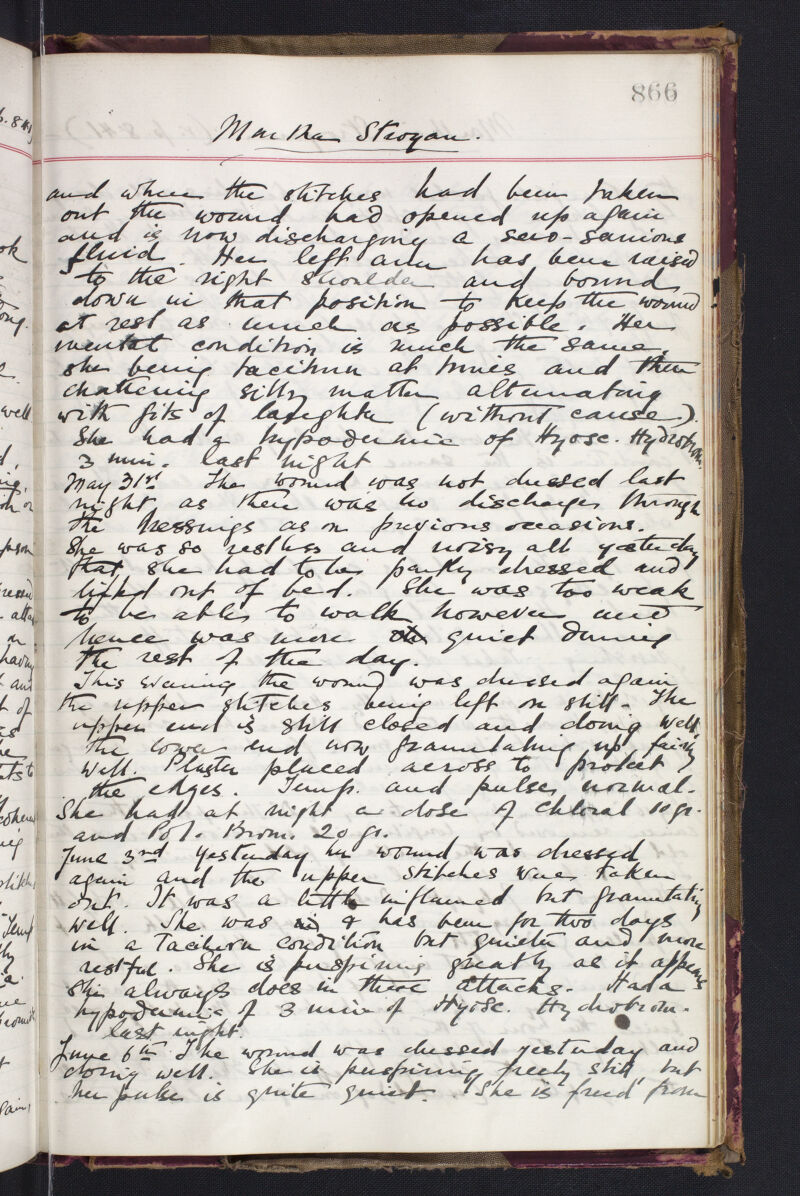 866
Martha Strogan.
and where the stitches had been taken
out the wound had opened up again
and is now discharging a sero-sanious
fluid. Her left arm has been raised
to the right shoulder and bound
down in that position to keep the wound
at rest as much as possible. Her
mental condition is much the same,
she being taciturn at times and then
chattering silly matter alternating
with fits of laughter (without cause).
She had a hypodermic of Hyosc. Hydrobrom.
3 min. last night
May 31st The wound was not dressed last
night as there was no discharge through
the dressings as on previous occasions.
She was so restless and noisy all yesterday
that she had to be partly dressed and
lifted out of bed. She was too weak
to be able to walk however and
hence was more quiet during
the rest of the day.
This evening the wound was dressed again
the upper stitches being left on still. The
upper end is still closed and doing well,
the lower end now granulating up fairly
well. Plaster placed across to protect
the edges. Temp. and pulse normal.
She had at night a dose of Chloral 10 gr.
and Pot. Brom. 20 gr.
June 3rd Yesterday her wound was dressed
again and the upper stitches were taken
out. It was a little inflamed but granulating
well. She was & has been for two days
in a taciturn condition but quieter and more
restful. She is perspiring greatly as it appears
she always does in these attacks. Had a
hypodermic of 3 min of Hyosc. Hydrobrom.
last night.
June 6th The wound was dressed yesterday and
doing well. She is perspiring freely still, but
her pulse is quite quiet. She is freed from